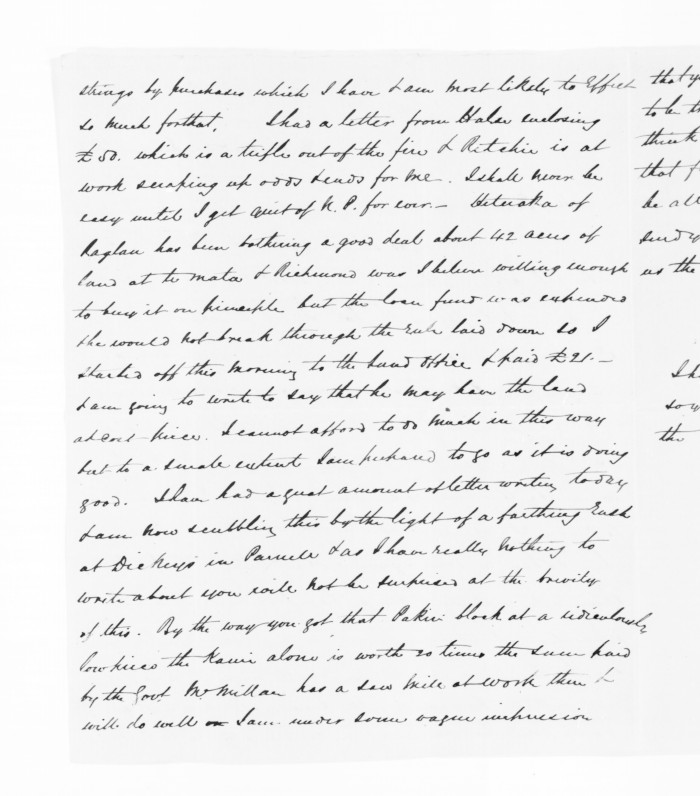 strings by purchases which I have & am most likely to Effect
so much for that. I had a letter from Halse enclosing
£50. which is a trifle out of the fire & Ritchie is at
work scraping up odds & ends for me. I shall never be
easy until I get quit of N.P. for ever. — Hetaraka of
Raglan has been bothering a good deal about 42 acres of
land at te Mata & Richmond was I believe willing enough
to buy it on principle but the loan fund was expended
& he would not break through the rule laid down so I
started off this morning to the Land Office & paid £21. —
& am going to write to say that he may have the land
at cost price. I cannot afford to do much in this way
but to a small extent I am prepared to go as it is doing
good. I have had a great amount of letter writing today
& am now scribbling this by the light of a farthing Rush
at Dickey's in Parnell & as I have really nothing to
write about you will not be surprised at the brevity
of this. By the way you got that Pakiri block at a ridiculously
low price the Kauri alone is worth 20 times the sum paid
by the Govt. McMillan has a saw mill at work there &
will do well I am under some vague impression
that y
to be
think
that f
be all
send y
us the
I h
so y
the